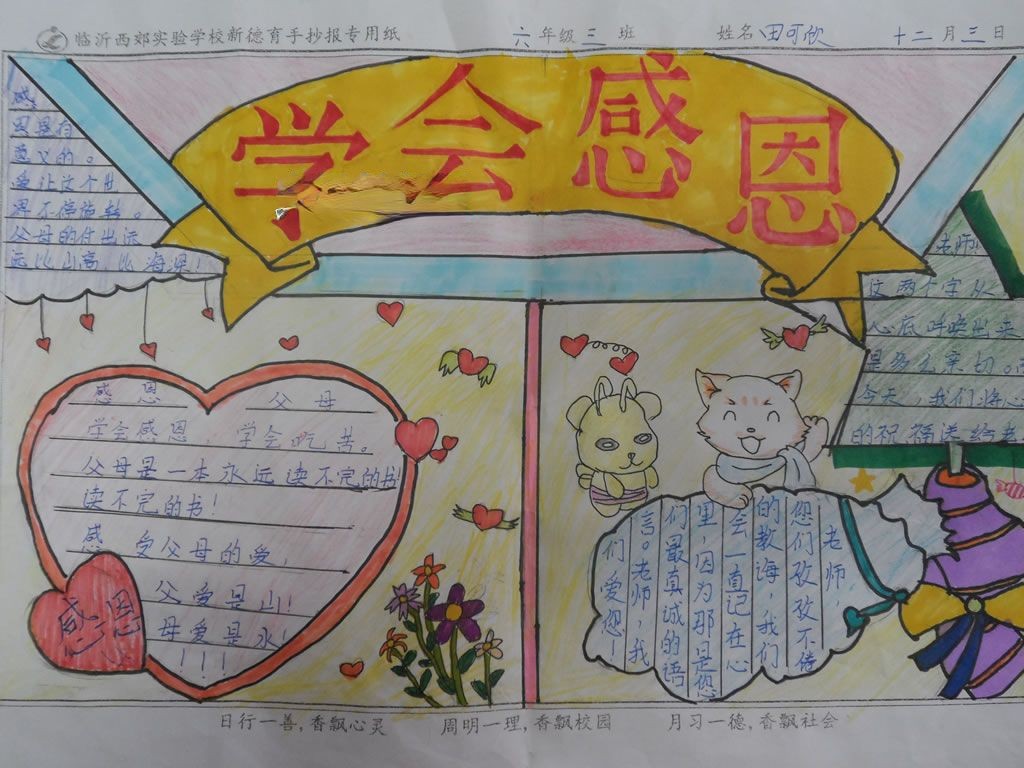 临沂西郊实验学校新德育手抄报专用纸 六年级三班 姓名田可欣 十二月三日
学会感恩
感
恩是有
意义的。
爱让这个世
界不停旋转。
父母的付出远
远比山高比海深！
感恩 父母
学会感恩，学会吃苦。
父母是一本永远读不完的书！
读不完的书！
感受父母的爱，
父爱是山！
母爱是水！
！！！
感恩
老师
这两个字从
心底呼唤出来
是多么亲切。
今天，我们将心
的祝福送给老
老师，
您们孜孜不倦
的教诲，我们
会一直记在心
里，因为那是您
们最真诚的语
言。老师，我
们爱您！
日行一善，香飘心灵 周明一理，香飘校园 月习一德，香飘社会